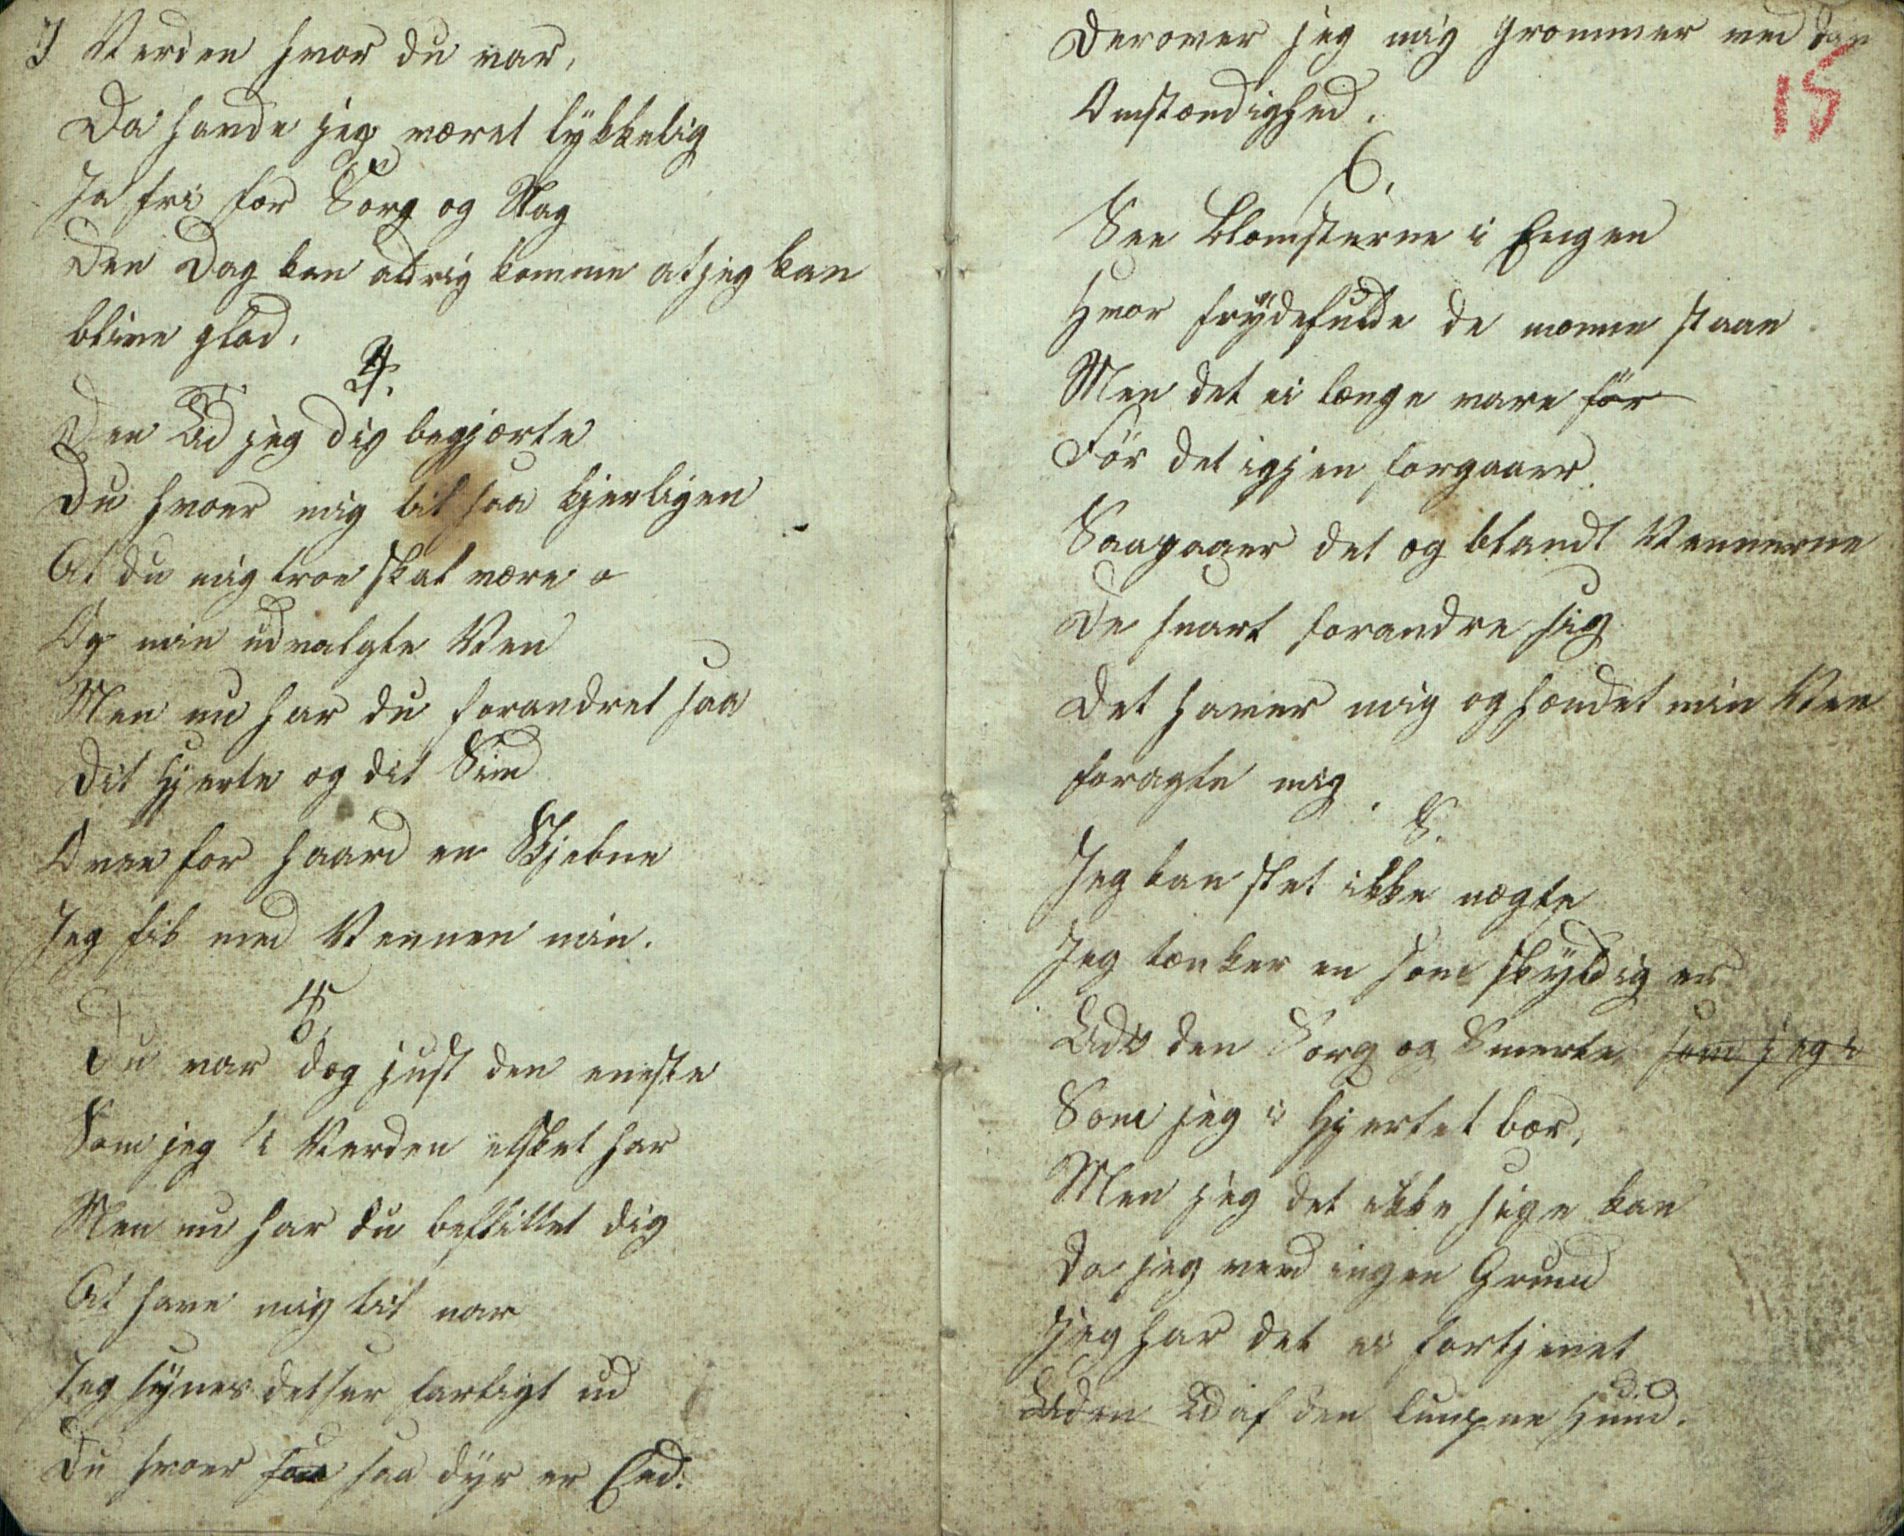 I Verden hvor du var,
Da havde jeg været lykkelig
Ja fri for Sorg og Nag
Den Dag kan aldrig komme at jeg kan
blive glad.
4.
Den Tid jeg dig begjærte
Du svoer mig til saa kjerligen
At du mig troe skal være
Og min udvalgte Ven
Men nu har du forandret saa
Dit Hjerte og dit Sind
O vee for haard en Skjebne
Jeg fik med Vennen min.
5.
Du var dog just den eneste
Som jeg i Verden elsket har
Men nu har du beflittet dig
At have mig til nar
Jeg synes det seer farligt ud
Du svoer saa dyr en Eed.
Derover jeg mig grommer ved den
Omstændighed.
15
6.
See Blomsterne i Engen
Hvor frydefulde de monne staae
Men det ei længe vare för
För det igjen forgaaer
Saa gaaer det og blandt Vennerne
De snart forandre sig
Det haver mig og hændet min Ven
foragte mig.
Jeg kan slet ikke nægte
Jeg tænker en som skyldig er
Udi den Sorg og Smerte som jeg i
Som jeg i Hjertet bær,
Men jeg det ikke sige kan
Da jeg veed ingen Grund
Jeg har det ei fortjenet
Uden Ud af den lumpne Hund.